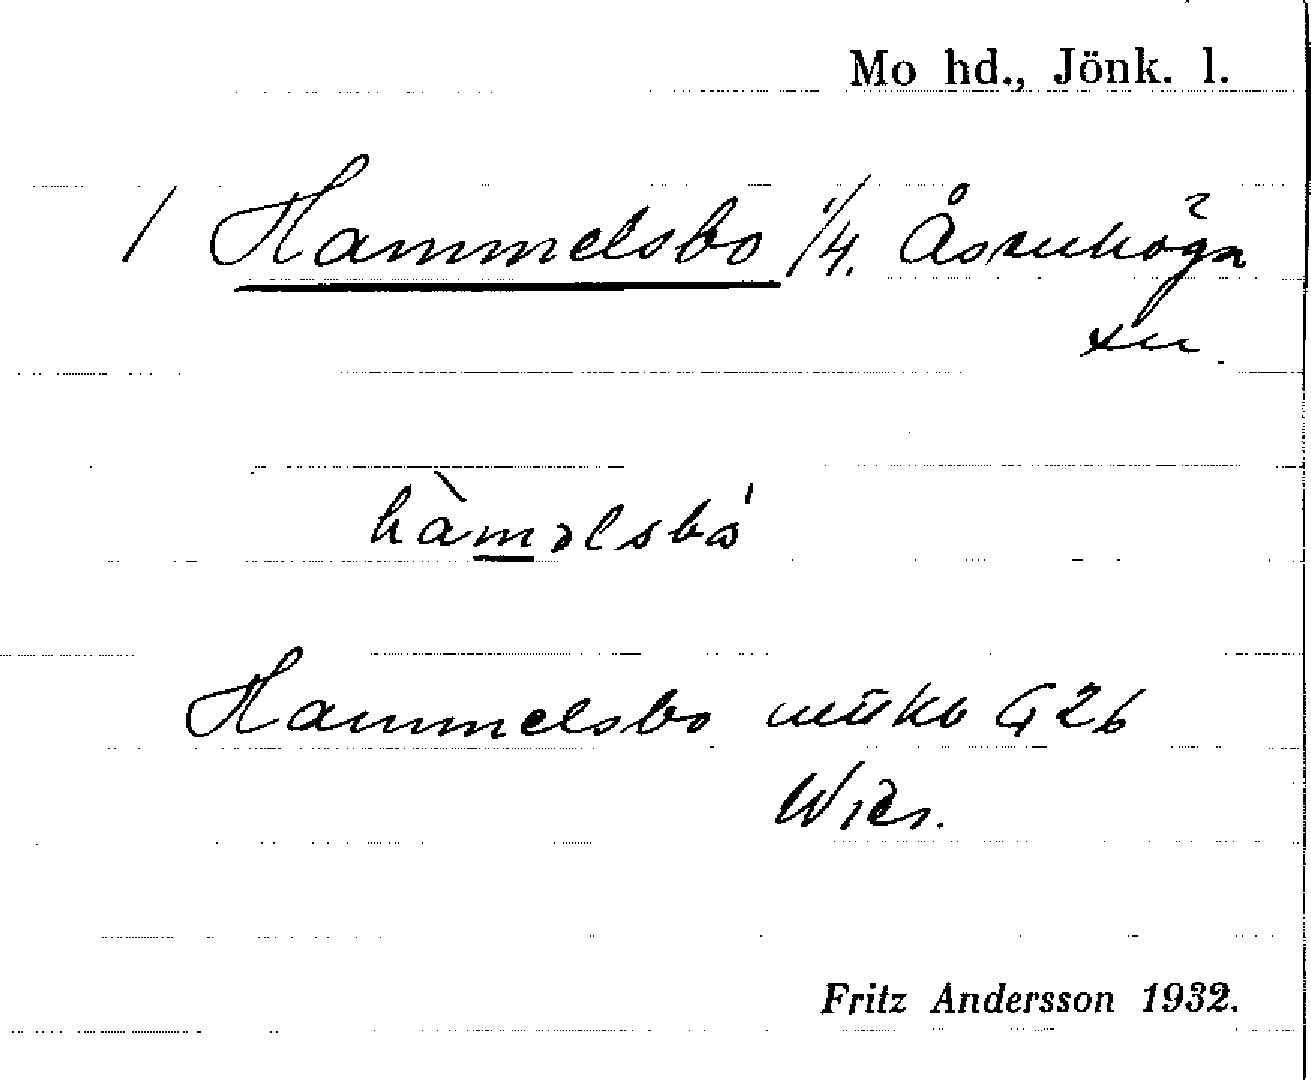 Mo hd., Jönk. l.
/ Hammelsbo 1/4. Åsenhöga
sn.
hàməlsbó
Hammelsbo G 26
Fritz Andersson 1932.